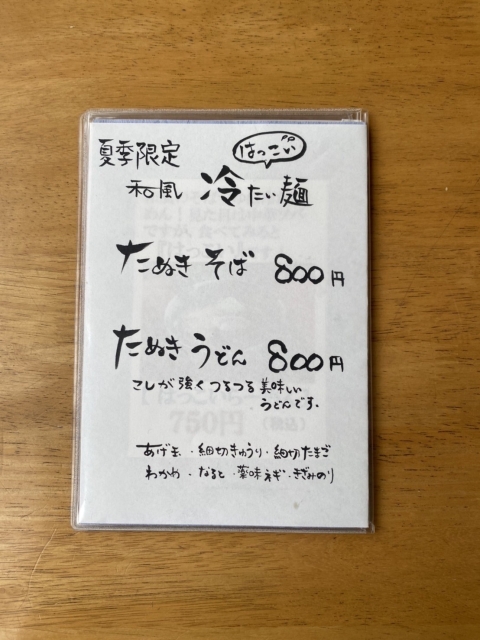 夏季限定
はっこい
和風 冷たい麺
たぬきそば 800円
たぬきうどん 800円
こしが強くつるつる美味しい
うどんです。
あげ玉・細切きゅうり・細切たまご
わかめ・なると・薬味ネギ・きざみのり
750円 (税込)